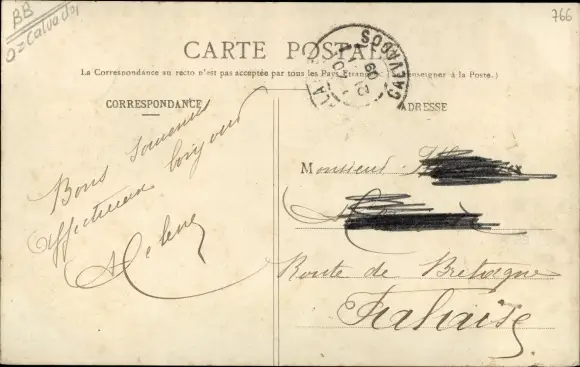 BB
O=Calvados
766
CARTE POSTALE
La Correspondance au recto n'est pas acceptée par tous les Pays Etrangers (Se renseigner à la Poste.)
CALVADOS
21
09
CORRESPONDANCE
ADRESSE
Bons Souvenirs
Affectueux bonjour
Hélène
Monsieur
Route de Bretagne
Falaise